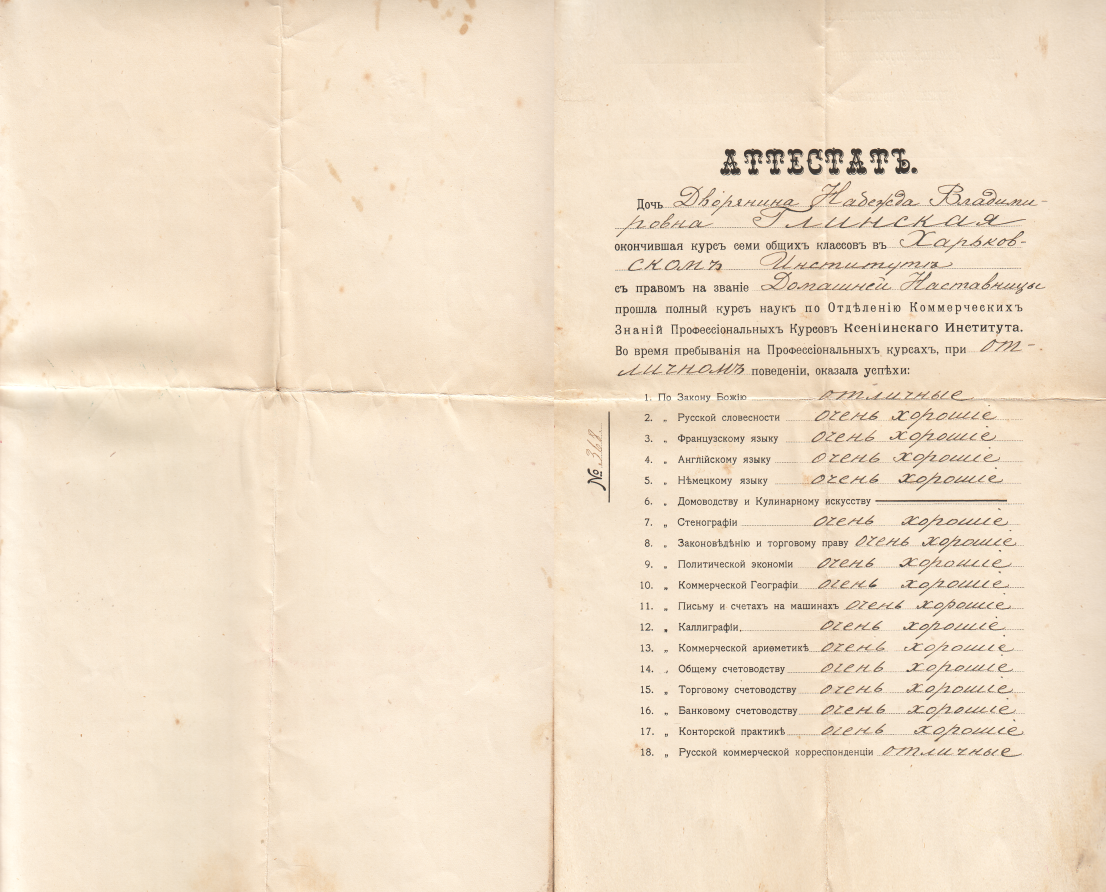 АТТЕСТАТЪ.
Дочь Дворянина Надежда Владими-
ровна Глинская
окончившая курсъ семи общихъ классовъ въ Харьков-
скомъ Институтѣ
съ правомъ на званіе Домашней Наставницы
прошла полный курсъ наукъ по Отдѣленію Коммерческихъ
Знаній Профессіональныхъ Курсовъ Ксеніинскаго Института.
Во время пребыванія на Профессіональныхъ курсахъ, при от-
личномъ поведеніи, оказала успѣхи:
1. По Закону Божію отличные
2. „ Русской словесности очень хорошіе
3. „ Французскому языку очень хорошіе
4. „ Англійскому языку очень хорошіе
5. „ Нѣмецкому языку очень хорошіе
6. „ Домоводству и Кулинарному искусству
7. „ Стенографіи очень хорошіе
8. „ Законовѣдѣнію и торговому праву очень хорошіе
9. „ Политической экономіи очень хорошіе
10. „ Коммерческой Географіи очень хорошіе
11. „ Письму и счетахъ на машинахъ очень хорошіе
12. „ Каллиграфіи. очень хорошіе
13. „ Коммерческой ариѳметикѣ очень хорошіе
14. „ Общему счетоводству очень хорошіе
15. „ Торговому счетоводству очень хорошіе
16. „ Банковому счетоводству очень хорошіе
17. „ Конторской практикѣ очень хорошіе
18. „ Русской коммерческой корреспонденціи отличные
№ 368.